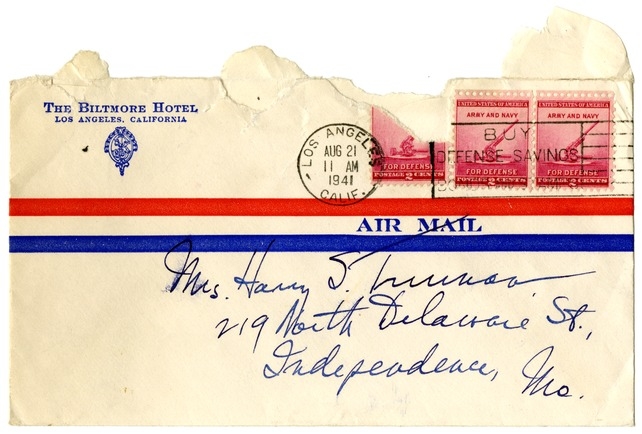 THE BILTMORE HOTEL
LOS ANGELES, CALIFORNIA
LOS ANGELES
AUG 21
11 AM
1941
CALIF.
FOR DEFENSE
POSTAGE 2 CENTS
UNITED STATES OF AMERICA
ARMY AND NAVY
FOR DEFENSE
POSTAGE 2 CENTS
UNITED STATES OF AMERICA
ARMY AND NAVY
FOR DEFENSE
POSTAGE 2 CENTS
BUY
DEFENSE SAVINGS
AIR MAIL
Mrs. Harry S. Truman
219 North Delaware St.,
Independence, Mo.